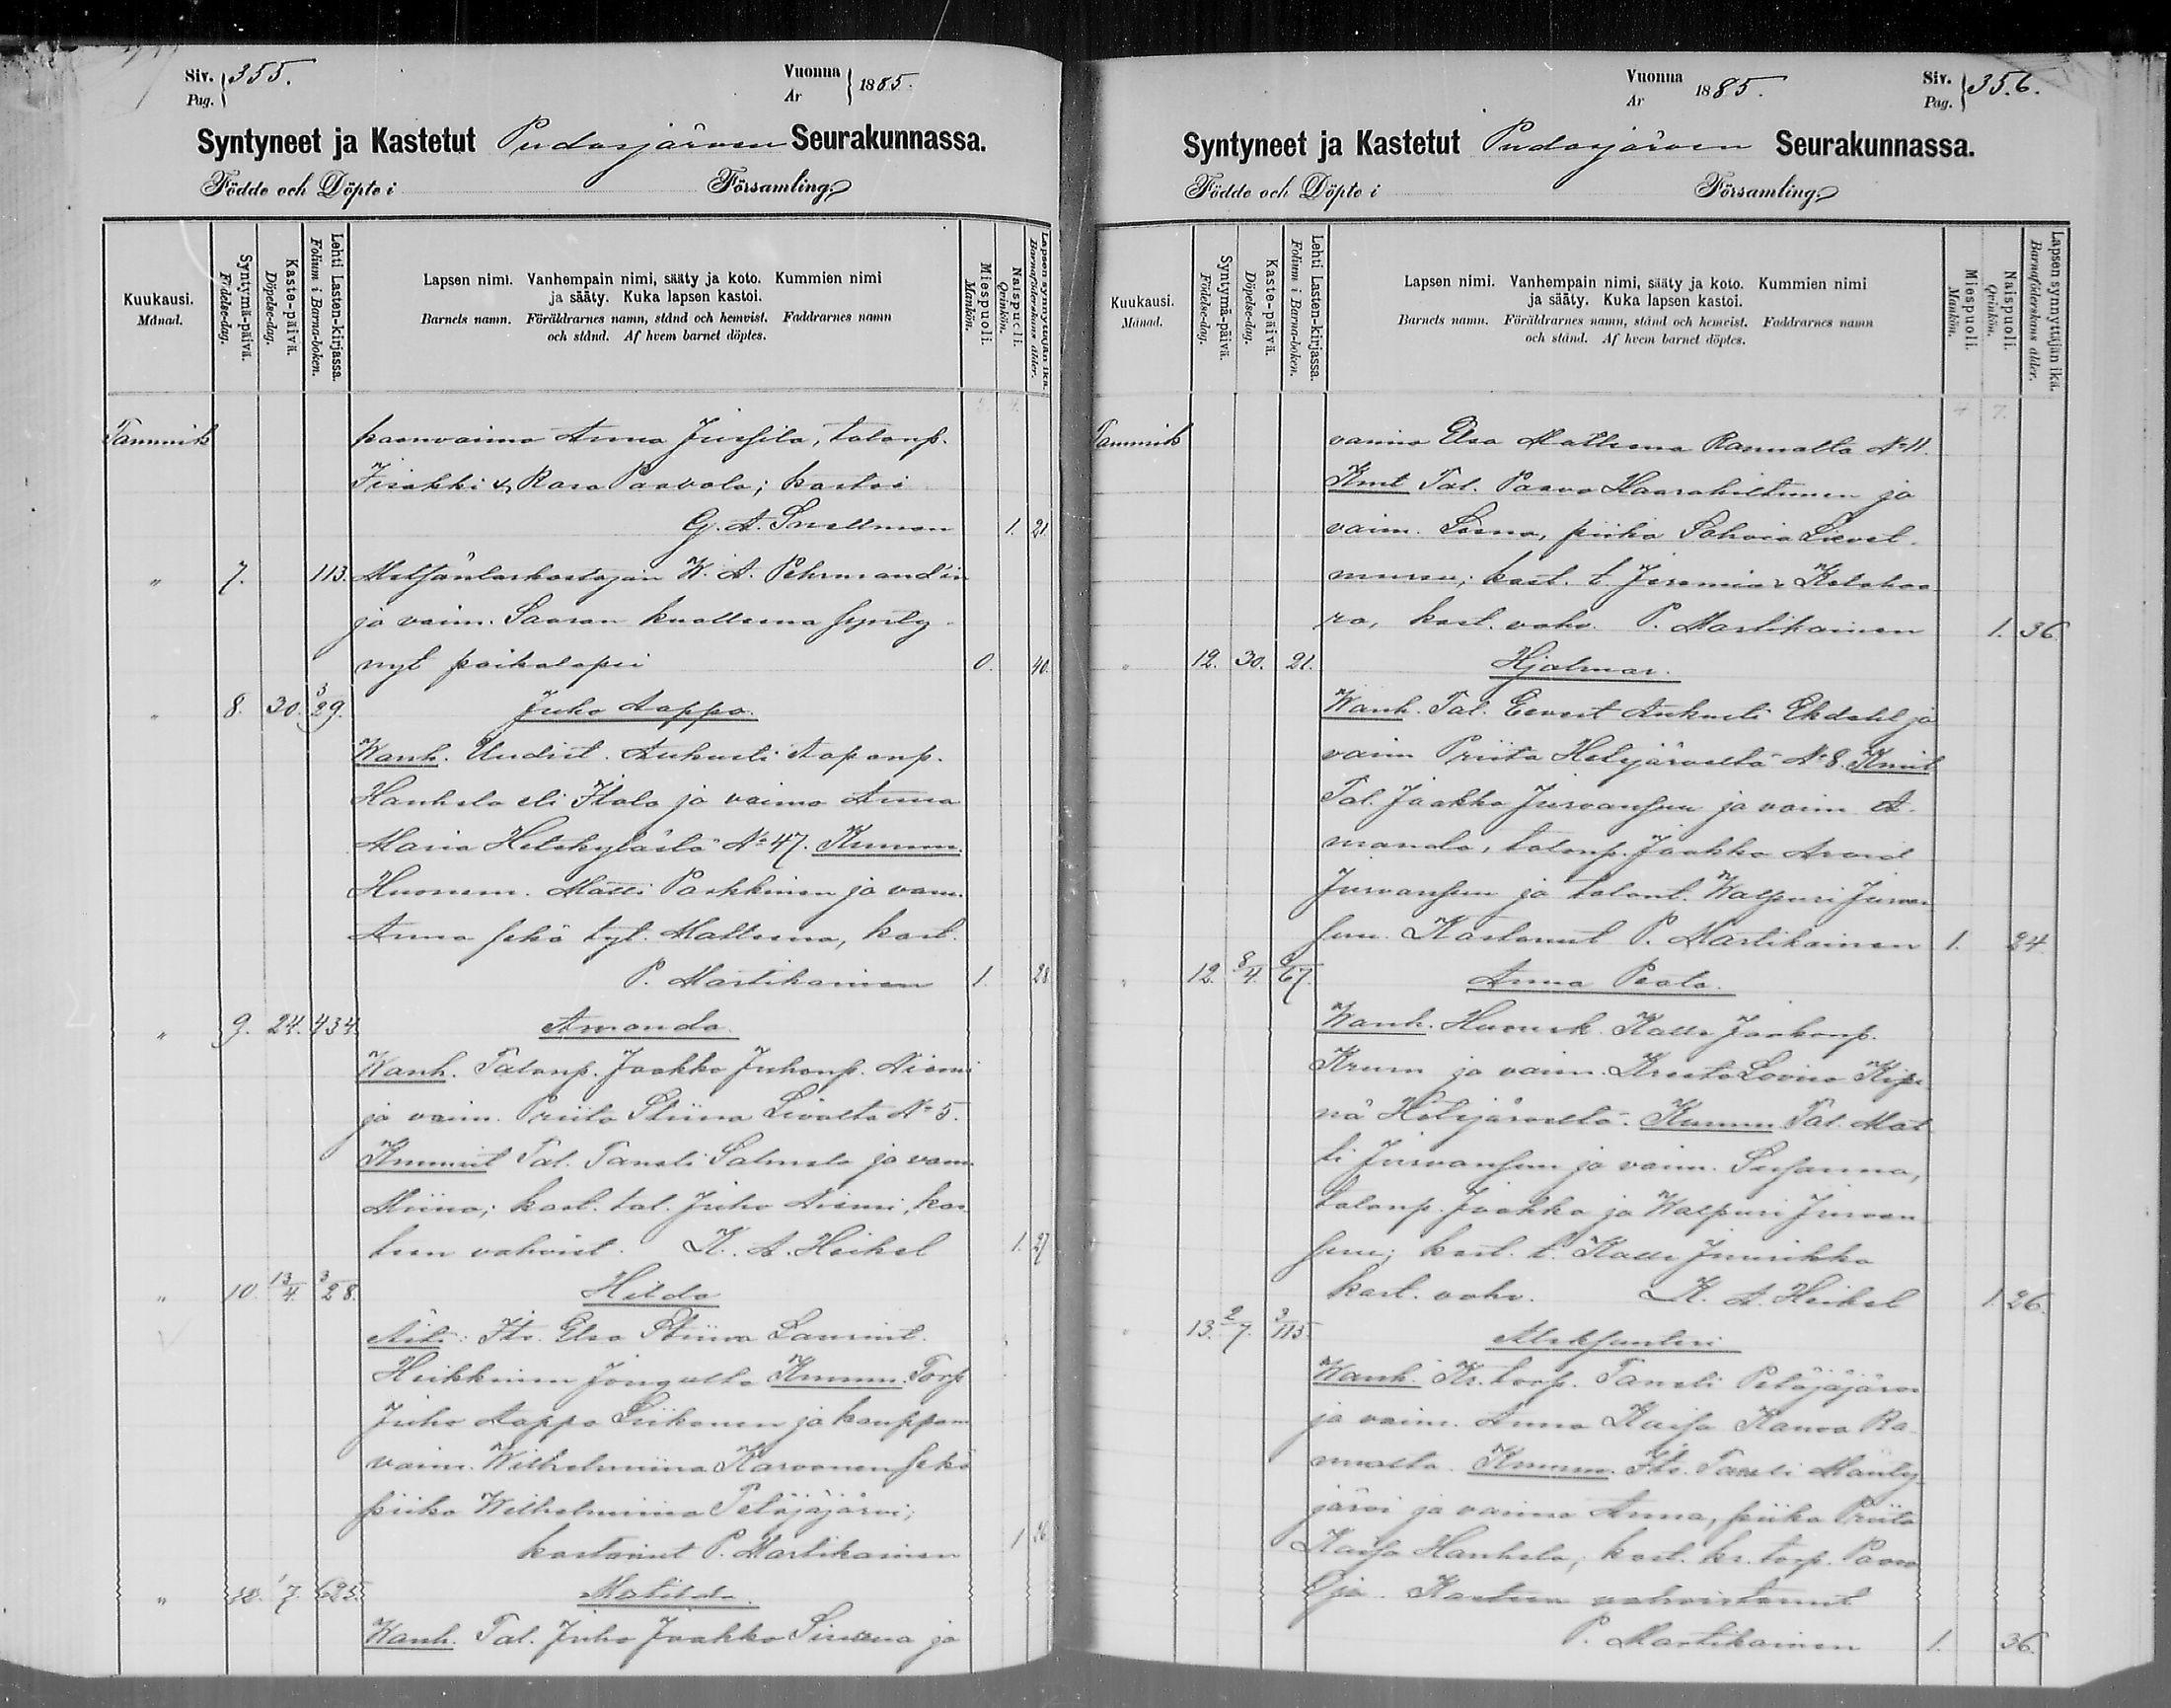 Siv. 355.
Pag.
Vuonna 1885.
Ar
Syntyneet ja Kastetut Pudasjärven Seurakunnassa.
Födde och Döpte i Församling
Kuukausi.
Månad.
Syntymä-päivä.
Födelse-dag.
Kaste-päivä.
Döpelse-dag.
Lehti Lasten-kirjassa.
Folium i Barna-boken.
Lapsen nimi. Vanhempain nimi, sääty ja koto. Kummien nimi
ja sääty. Kuka lapsen kastoi.
Barnets namn. Föräldrarnes namn, stånd och hemvist. Faddrarnes namn
och stånd. Af hvem barnet döptes.
Miespuoli.
Mankön.
Naispuoli.
Qvinkön.
Lapsen synnyttäjän ikä.
Barnaföderskans ålder.
Tammik
paanvaimo Anna Jussila, talonp.
Iisakki & Rasa Paavola; kastoi
G. A. Snellman 1. 21
" 7. 113. Metsänlaskostajan W. A. Pehrmand'in
ja vaim. Saaran kuolleena synty-
nyt poikalapsi 0. 40.
" 8. 30. 3/29. Juho Aappo.
Wanh. Uudist. Aukusti Aaponp.
Hanhela eli Itala ja vaimo Anna
Maria Hetekylästä No 47. Kumm.
Huonem. Matti Parkkinen ja vaim.
Anna sekä tyt. Mattsena, kast.
P. Martikainen 1. 28
" 9. 24. 434. Amanda.
Wanh. Talonp. Jaakko Juhonp. Niemi
ja vaim. Priita Stiina Livolta No 5.
Kummit Tal. Taneli Salmela ja vaim.
Miina; kast. tal. Juho Niemi, kas-
teen vahvist. K. A. Heikel 1. 27
" 10. 13/4. 3/28. Hilda
Äiti: Its. Elsa Stiina Laurint.
Heikkinen Jongulta Kumm. Torp
Juho Aappo Liikanen ja kauppam
vaim. Wilhelmiina Karvonen sekä
piika Wilhelmiina Petäjäjärvi;
kastanut P. Martikainen 1 26
" 10. 1/7. 625. Matilda.
Wanh. Tal. Juho Jaakko Sirviena ja
Vuonna 1885.
Ar
Siv. 356.
Pag.
Syntyneet ja Kastetut Pudasjärven Seurakunnassa.
Födde och Döpte i Församling
Kuukausi.
Månad.
Syntymä-päivä.
Födelse-dag.
Kaste-päivä.
Döpelse-dag.
Lehti Lasten-kirjassa.
Folium i Barna-boken.
Lapsen nimi. Vanhempain nimi, sääty ja koto. Kummien nimi
ja sääty. Kuka lapsen kastoi.
Barnets namn. Föräldrarnes namn, stånd och hemvist. Faddrarnes namn
och stånd. Af hvem barnet döptes.
Miespuoli.
Mankön.
Naispuoli.
Qvinkön.
Lapsen synnyttäjän ikä.
Barnaföderskans ålder.
Tammik
vaimo Elsa Mattsena Ranualta No 11.
Kmt Tal. Paavo Haarahiltunen ja
vaim. Leena, piika Sohvia
kast. t. Jeremias Kelahaa-
ra, kast. vahv. P. Martikainen 1. 36.
" 12. 30. 21. Hjalmar.
Wanh. Tal. Eevert Aukusti Ekdahl ja
vaim Priita Hetejärveltä No 8. Kmit
Tal. Jaakko Jurvansuu ja vaim A-
manda, talonp. Jaakko Arvid
Jurvansuu ja talont. Walpuri Jurvan
suu. Kastanut P. Martikainen 1. 24
" 12. 8/4. 3/67. Anna Peata.
Wanh. Huonek. Kalle Jaakonp.
Krum ja vaim. Kreeta Lovisa Kipi
nä Hetejärveltä. Kumm Tal. Mat
ti Jurvansuu ja vaim. Susanna,
talonp. Jaakko ja Walpuri Jurvan
suu; kast. t. Kalle Juurikka
kast. vahv. K. A. Heikel 1. 26.
" 13. 2/7. 3/115. Aleksanteri
Wanh. Kr. torp. Taneli Petäjäjärvi
ja vaim. Anna Kaisa Kanva Ra-
nualta. Kumm. Its. Taneli Mänty-
järvi ja vaimo Anna, piika Priita
Kaisa Hanhela; kast. kr. torp. Paavo
Oja. Kasteen vahvistanut
P. Martikainen 1. 36.